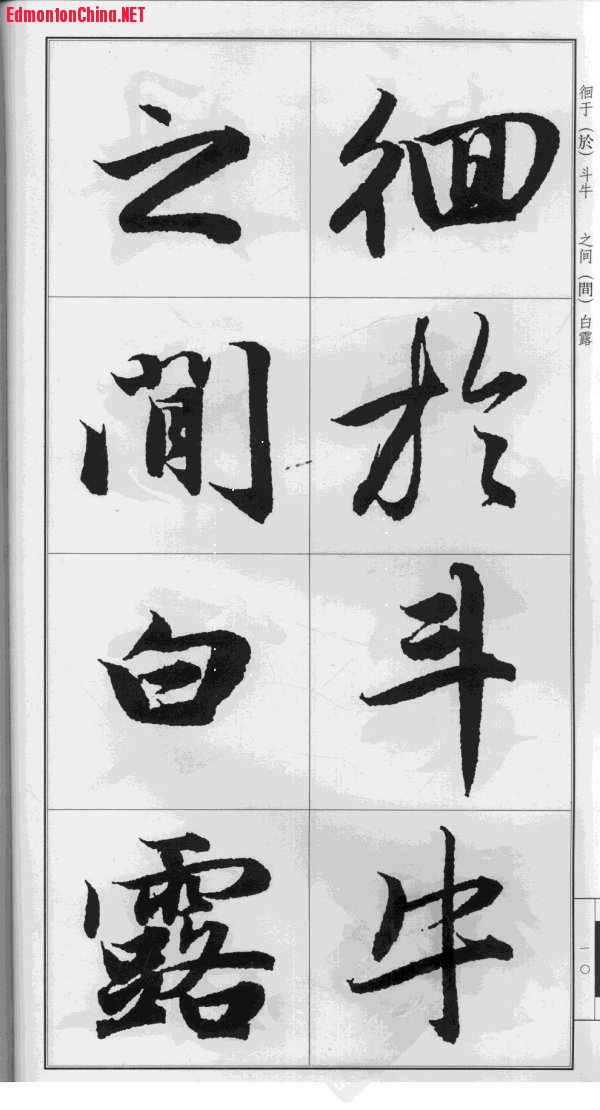 EdmontonChina.NET
徊於斗牛
之間白露
徊于(於)斗牛 之间(間)白露
一〇